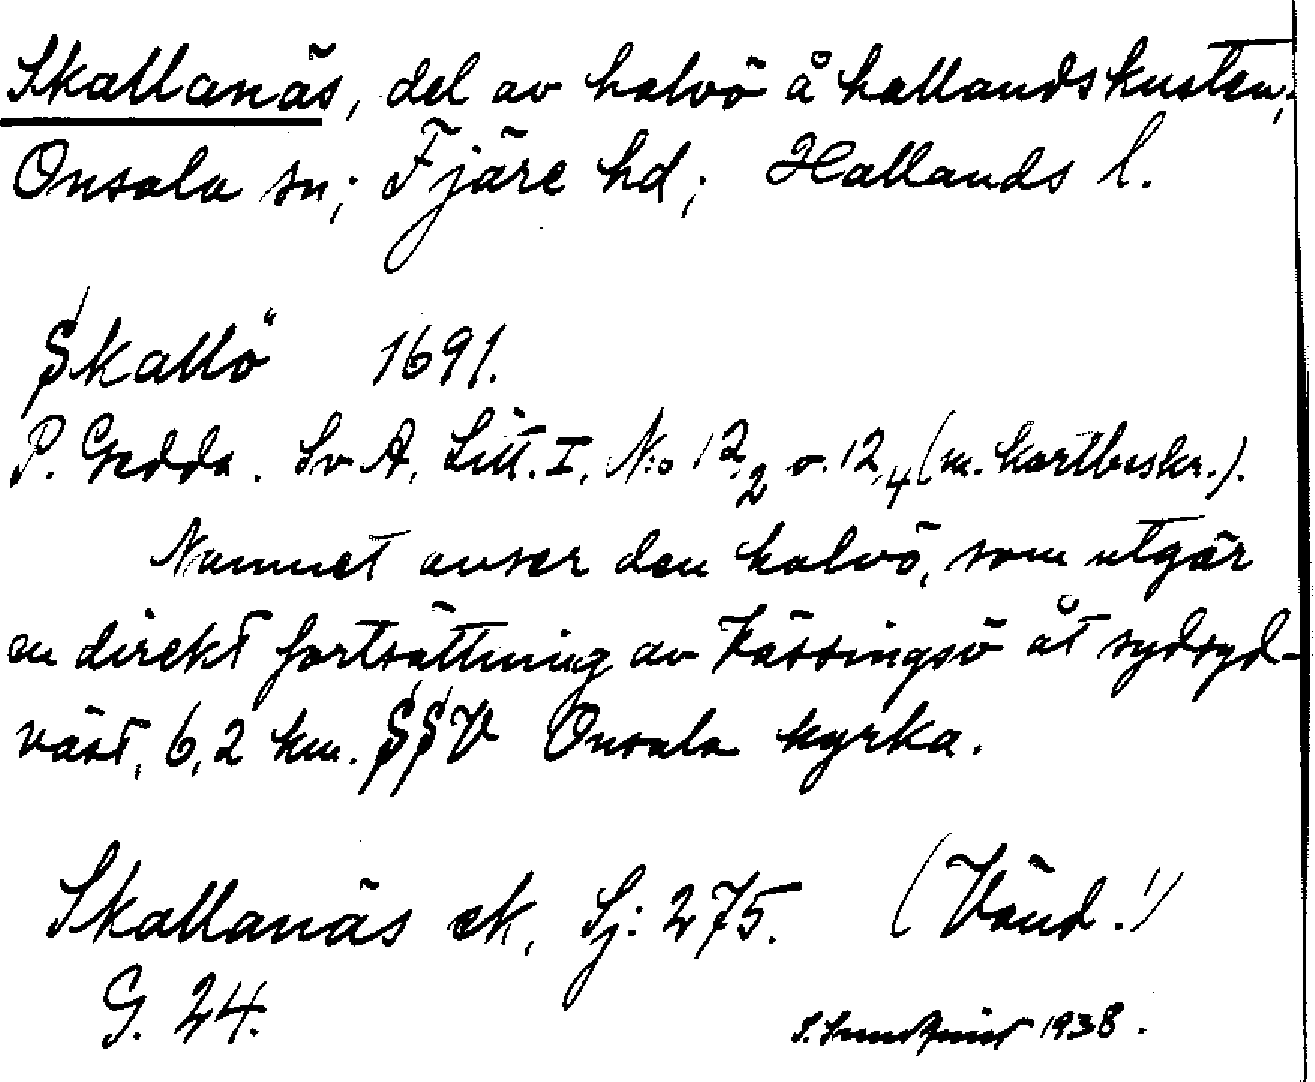 Skallanäs, del av halvö å hallandskusten;
Onsala sn; Fjäre hd; Hallands l.
Skallö 1691.
P. Gedda. Sv A. Litt. I. N:o 12,2 o. 12,4 (m. kortbeskr.).
Namnet avser den halvö, som utgör
en direkt fortsättning av Kässingsö åt sydsyd-
väst, 6,2 km. SSV Onsala kyrka.
Skallanäs ek, Sj: 275. (Vänd!)
G. 24.
1938.